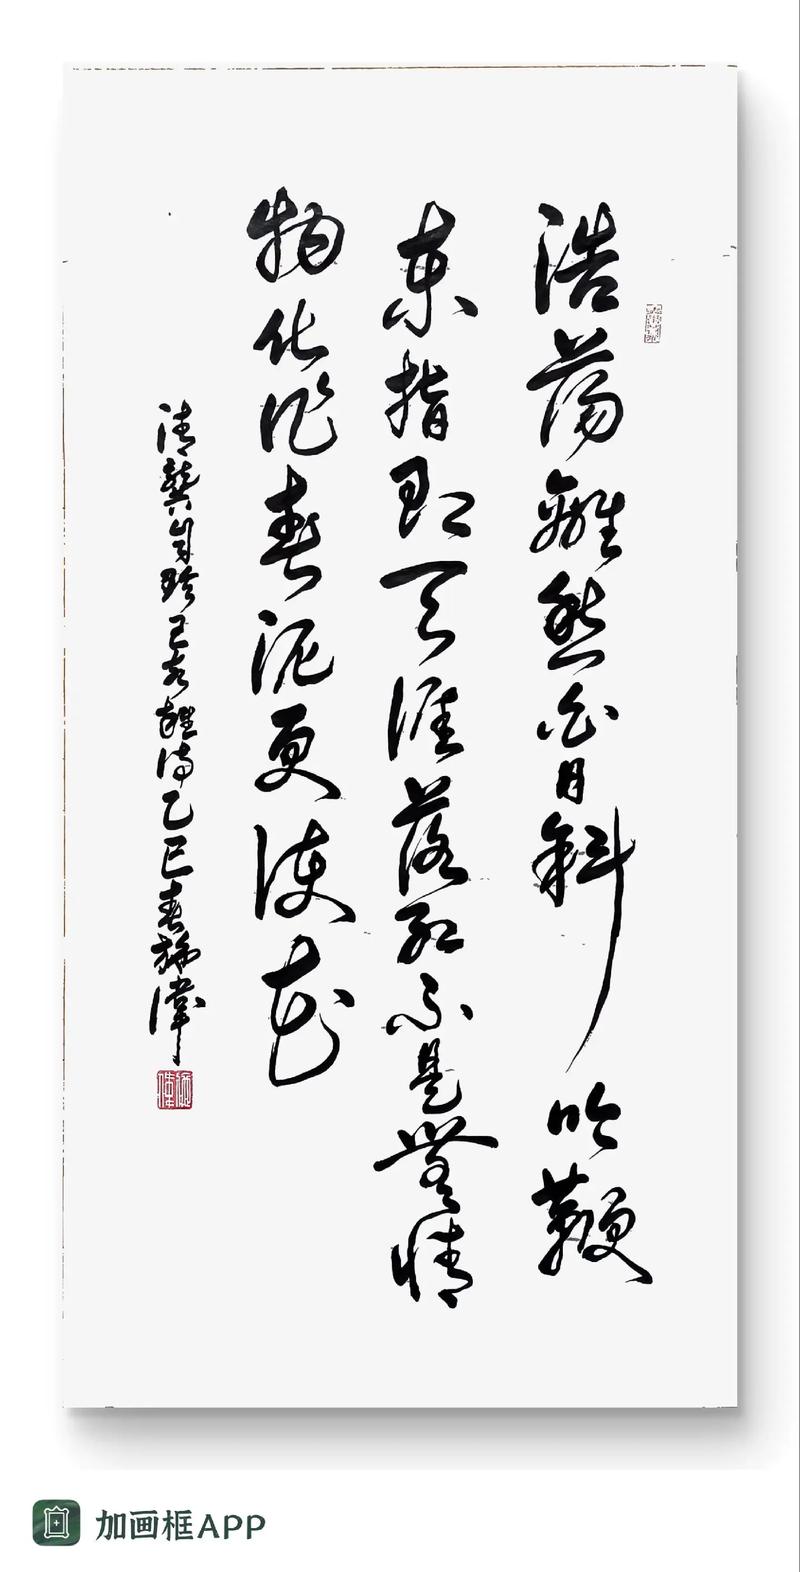 浩蕩離愁白日斜吟鞭
東指即天涯落紅不是無情
物化作春泥更護花
清龔自珍己亥雜詩乙巳春施偉
加画框APP